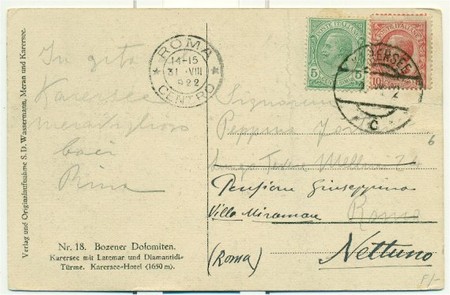 Verlag und Originalaufnahme S. D. Wassermann, Meran und Karersee.
In gita
Karersee
baci
Rina
ROMA
14-15
31 VIII
922
CENTRO
POSTE ITALIANE
5
POSTE ITALIANE
10
KARERSEE
C
Signorina
Peppina
Pensione Giuseppina
Villa Miramare
Roma
(Roma)
Nettuno
Nr. 18. Bozener Dolomiten.
Karersee mit Latemar und Diamantidi-
Türme. Karersee-Hotel (1650 m).
6